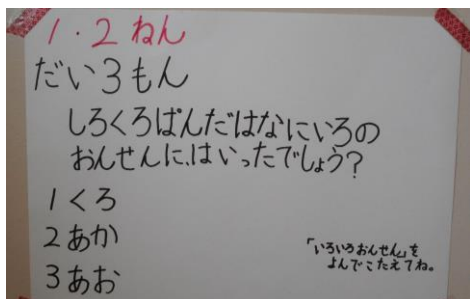 1・2ねん
だい3もん
しろくろぱんだはなにいろの
おんせんに、はいったでしょう?
1くろ
2あか
3あお
「いろいろおんせん」を
よんでこたえてね。